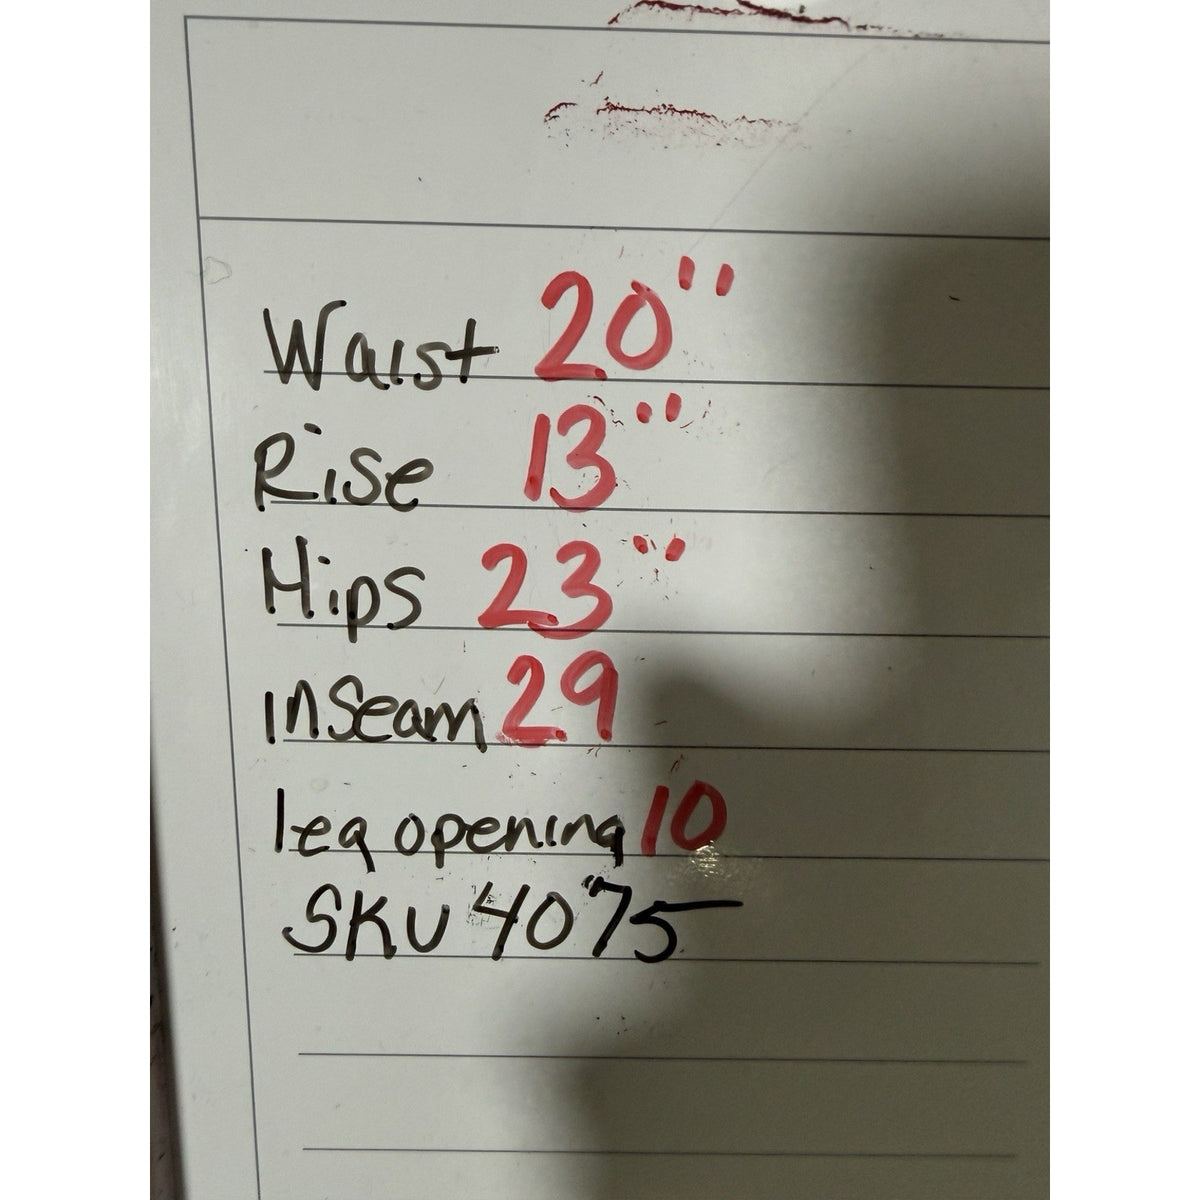 Waist 20"
Rise 13"
Hips 23"
inseam 29
leg opening 10
SKU 4075